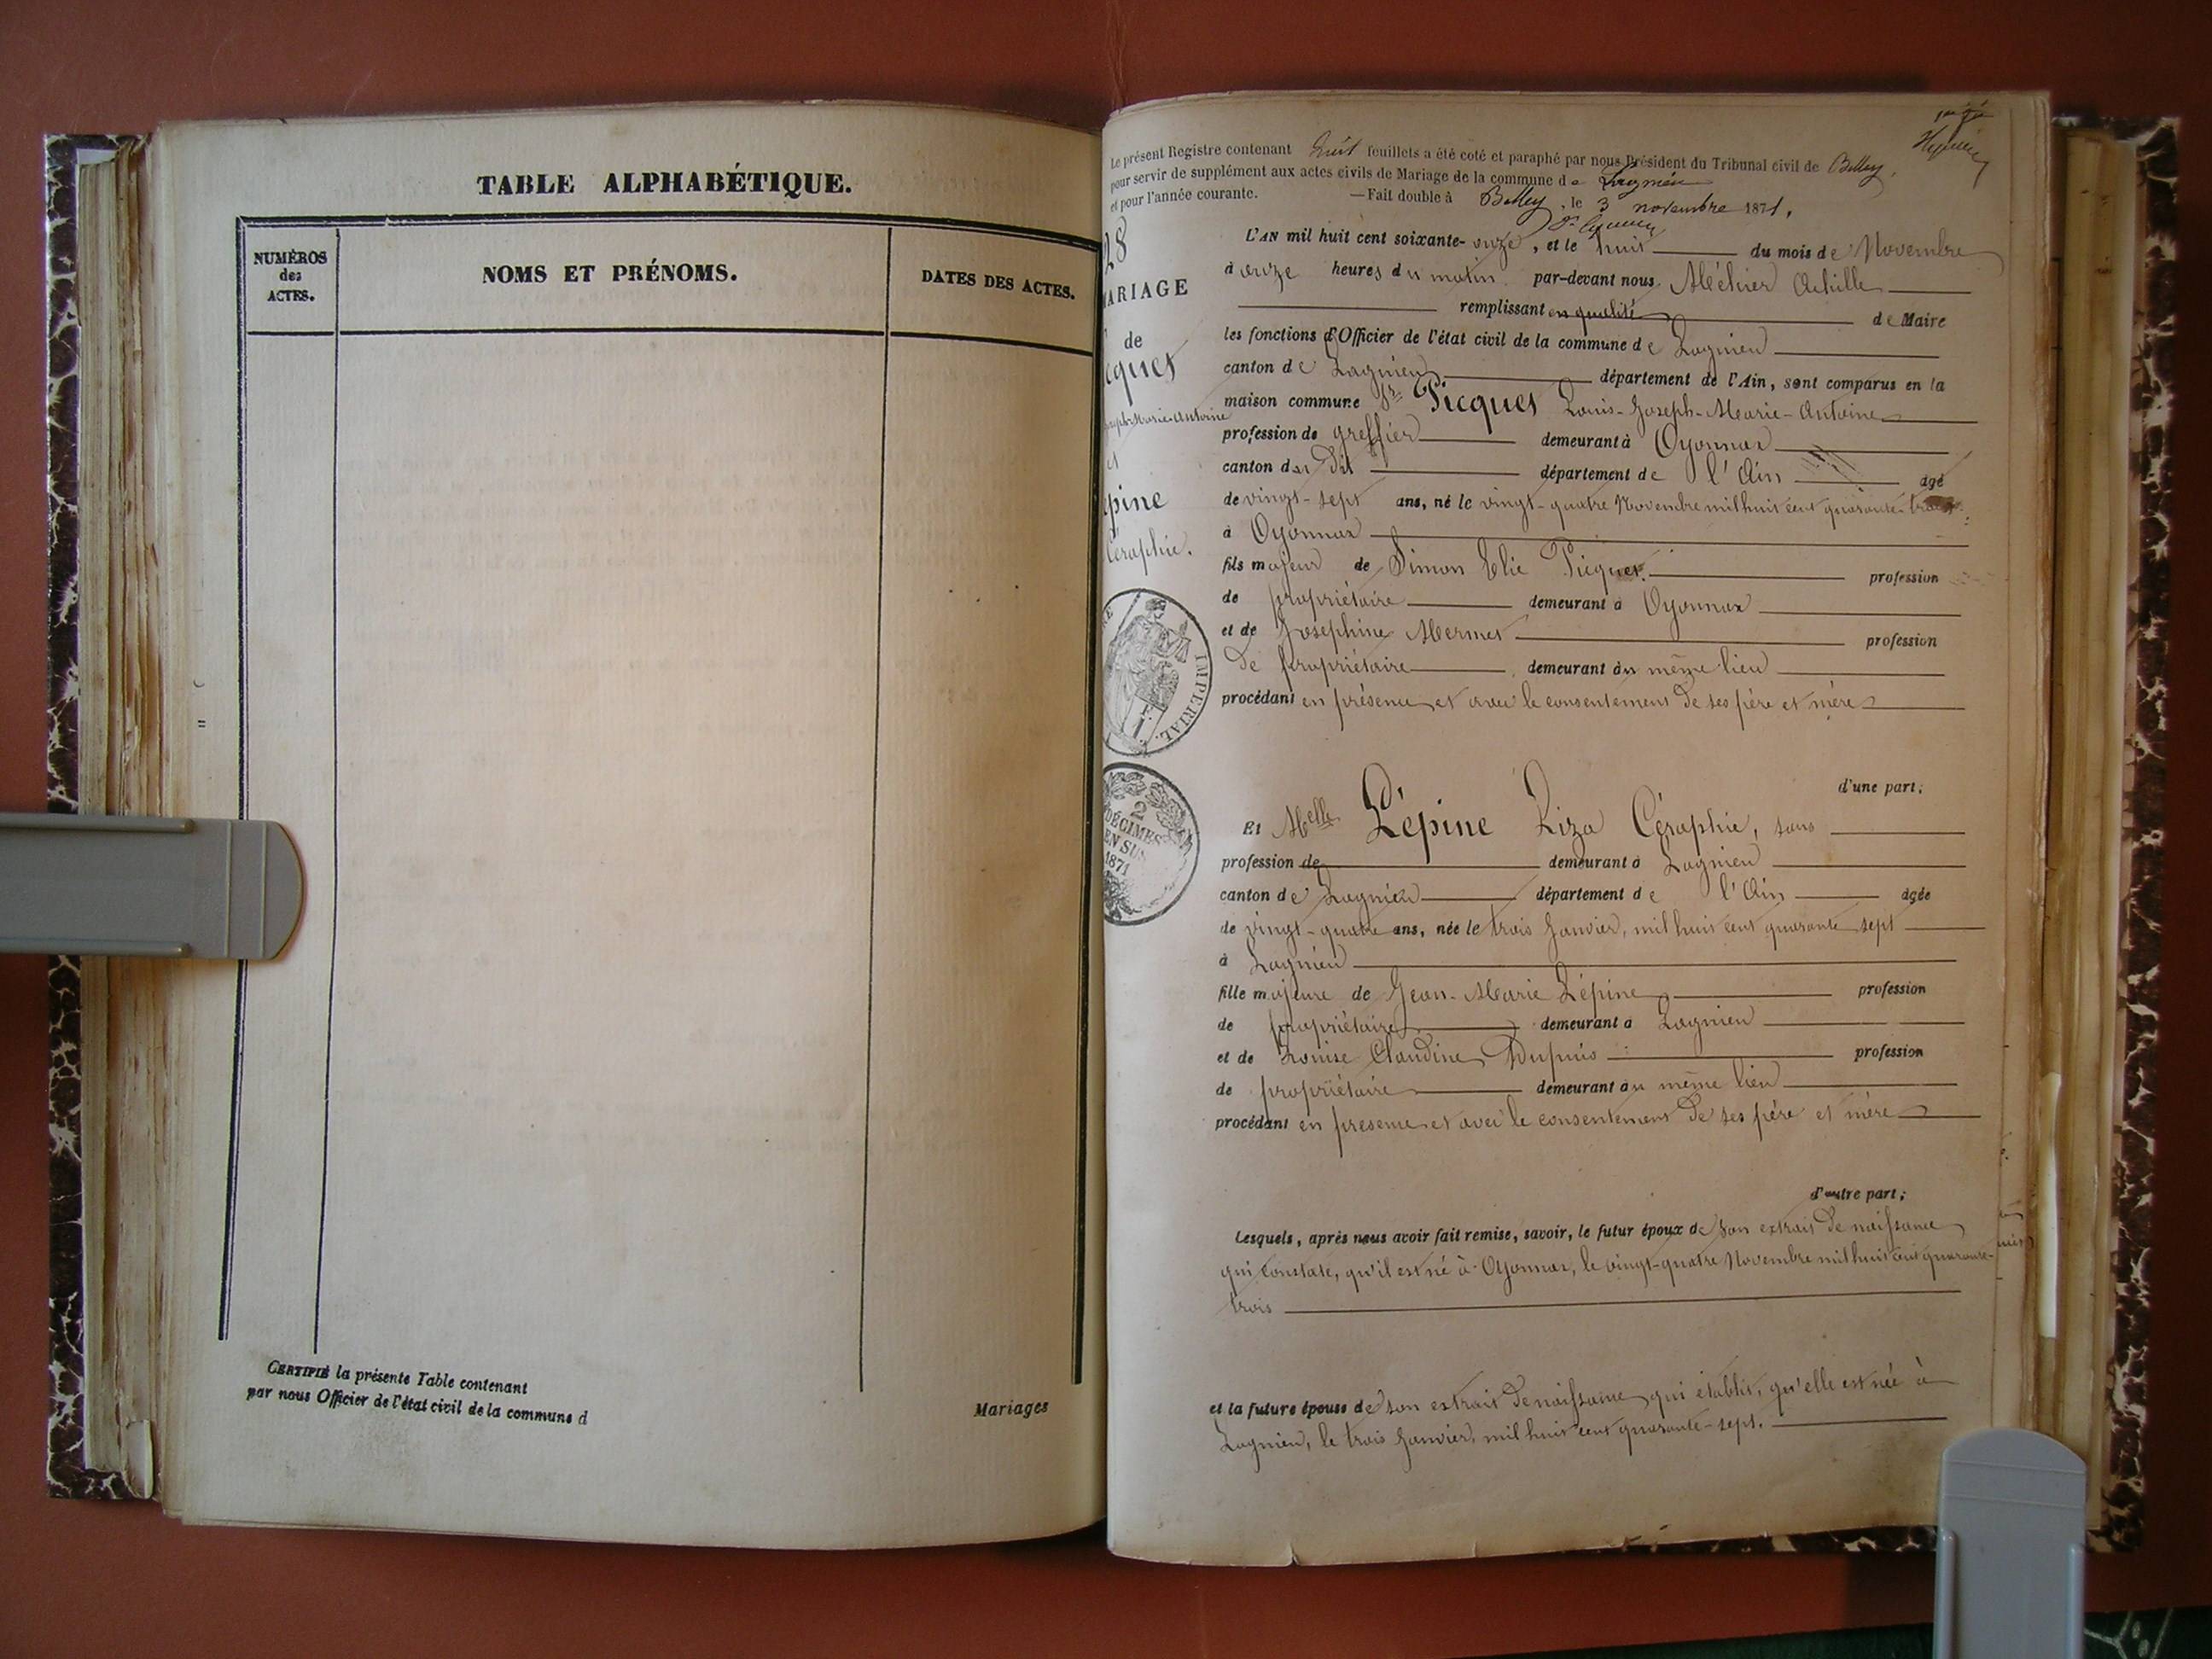 TABLE ALPHABÉTIQUE.
NUMÉROS
des
ACTES.
NOMS ET PRÉNOMS.
DATES DES ACTES.
CERTIFIÉ la présente Table contenant
par nous Officier de l'état civil de la commune d
Mariages
Le présent Registre contenant huit feuillets a été coté et paraphé par nous Président du Tribunal civil de Belley,
pour servir de supplément aux actes civils de Mariage de la commune de Lagnieu
et pour l'année courante. — Fait double à Belley, le 3 novembre 1871.
28
MARIAGE
de
cques
oseph-Marie-Antoine
et
épine
Céraphie.
IMPERIAL.
2
DÉCIMES
EN SUS
1871
L'AN mil huit cent soixante-onze, et le huit du mois de Novembre
à onze heures du matin par-devant nous, Méhier Achille
remplissant en qualité de Maire
les fonctions d'Officier de l'état civil de la commune de Lagnieu
canton de Lagnieu département de l'Ain, sont comparus en la
maison commune Sr. Picques Louis-Joseph-Marie-Antoine
profession de greffier demeurant à Oyonnax
canton du dit département de l'Ain agé
de vingt-sept ans, né le vingt-quatre Novembre mil huit cent quarante-trois
à Oyonnax
fils majeur de Simon Elie Picques profession
de propriétaire demeurant à Oyonnax
et de Josephine Mermet profession
de propriétaire demeurant au même lieu
procédant en présence et avec le consentement de ses père et mère
d'une part;
Et Melle Lépine Liza Céraphie, sans
profession de demeurant à Lagnieu
canton de Lagnieu département de l'Ain agée
de vingt-quatre ans, née le trois Janvier, mil huit cent quarante sept
à Lagnieu
fille majeure de Jean-Marie Lépine profession
de propriétaire demeurant à Lagnieu
et de Louise Claudine Dupuis profession
de propriétaire demeurant au même lieu
procédant en présence et avec le consentement de ses père et mère
d'autre part;
Lesquels, après nous avoir fait remise, savoir, le futur époux de son extrait de naissance
qui constate, qu'il est né à Oyonnax, le vingt-quatre Novembre mil huit cent quarante-
trois
et la future épouse de son extrait de naissance qui établit, qu'elle est née à
Lagnieu, le trois Janvier, mil huit cent quarante-sept.